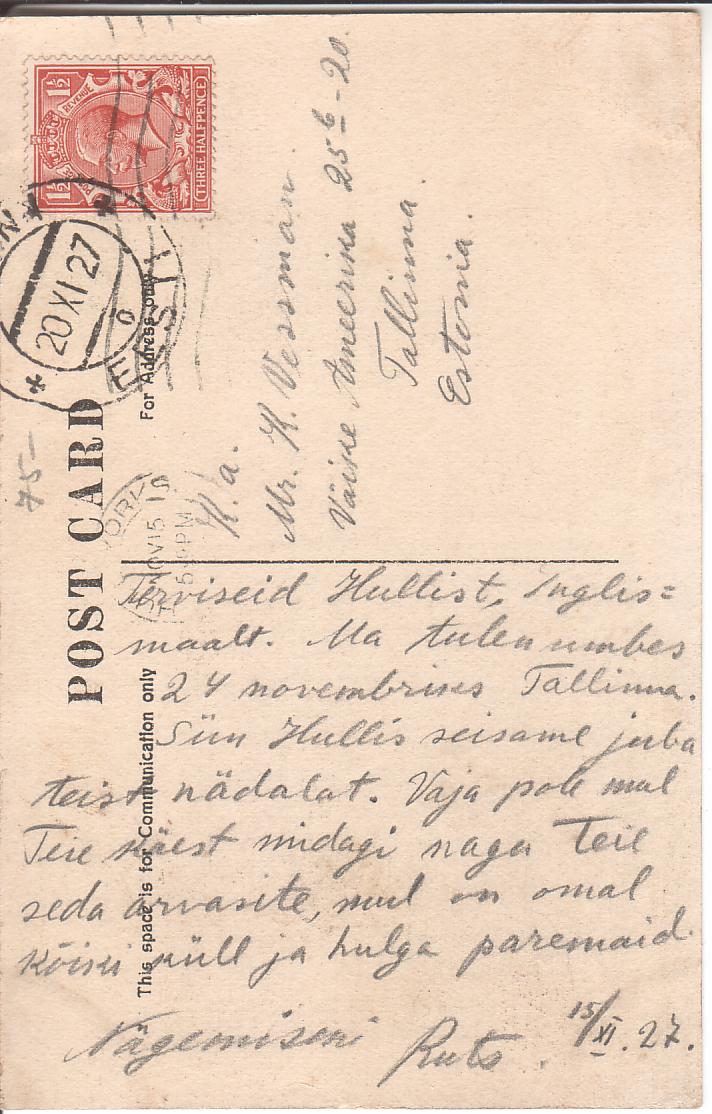 1½ REVENUE 1½
THREE HALFPENCE
20 XI 27
EESTI
POST CARD
For Address only
75-
YORKS
NOV 15
PM
K. a.
Mr. K. Vessman.
Väike Ameerika 25 b - 20.
Tallinna.
Estonia.
This space is for Communication only
Terviseid Hullist, Inglis=
maalt. Ma tulen umbes
24 novembriks Tallinna.
Siin Hullis seisame juba
teist nädalat. Vaja pole mul
Teie käest midagi naga Teie
seda arvasite, mul on omal
kõiki küll ja hulga paremaid.
Nägemiseni
15/XI. 27.